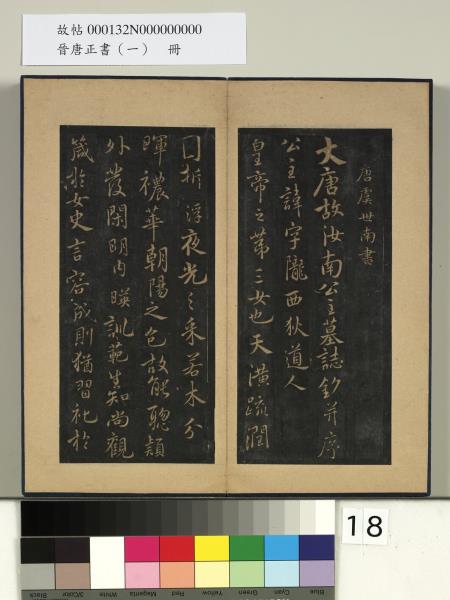 故帖 000132N000000000
晉唐正書（一） 冊
唐虞世南書
大唐故汝南公主墓誌銘并序
公主諱字隴西狄道人
皇帝之第三女也天潢疏潤
圓折浮夜光之采若木分
暉穠華朝陽之色故能聰穎
外發閑明內暎訓範生知尚觀
箴於女史言容成則猶習祀於
18
Black
3/Color
White
Magenta
Red
Yellow
Green
Cyan
Blue